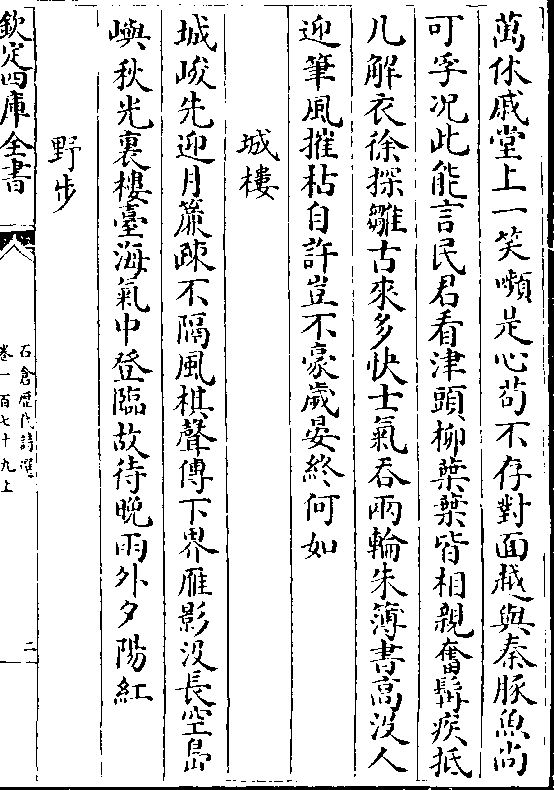 萬休戚堂上一笑嚬是心苟不存對面越與秦豚魚尚
可孚况此能言民君看津頭柳葉葉皆相親奮髯疾抵
几解衣徐探雛古來多快士氣吞兩輪朱簿書高没人
迎筆風摧枯自許豈不豪歲晏終何如
城樓
城峻先迎月簾疎不隔風棋聲傳下界雁影没長空島
嶼秋光裏樓臺海氣中登臨故待晚雨外夕陽紅
野步
欽定四庫全書
石倉歷代詩選
卷一百七十九上
二